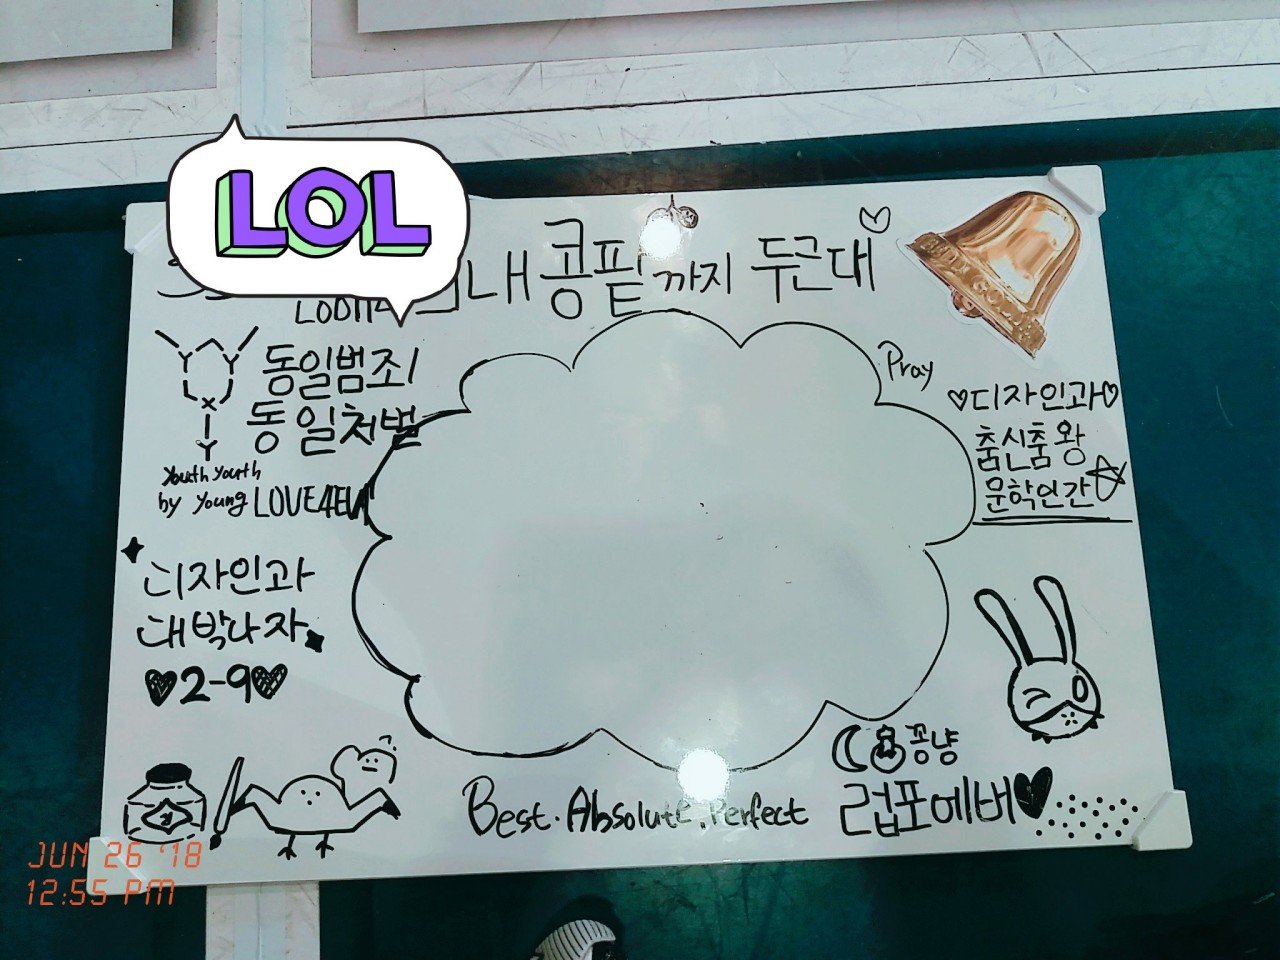 LOL
내 콩팥까지 두근대
동일범죄
동일처벌
Youth Youth
by Young LOVE4EVA
디자인과
대박나자
♥2-9♥
Pray
♡디자인과♡
춤신춤왕
문학인간
꽁냥
Best. Absolute. Perfect
럽포에버♥
JUN 26 '18
12:55 PM